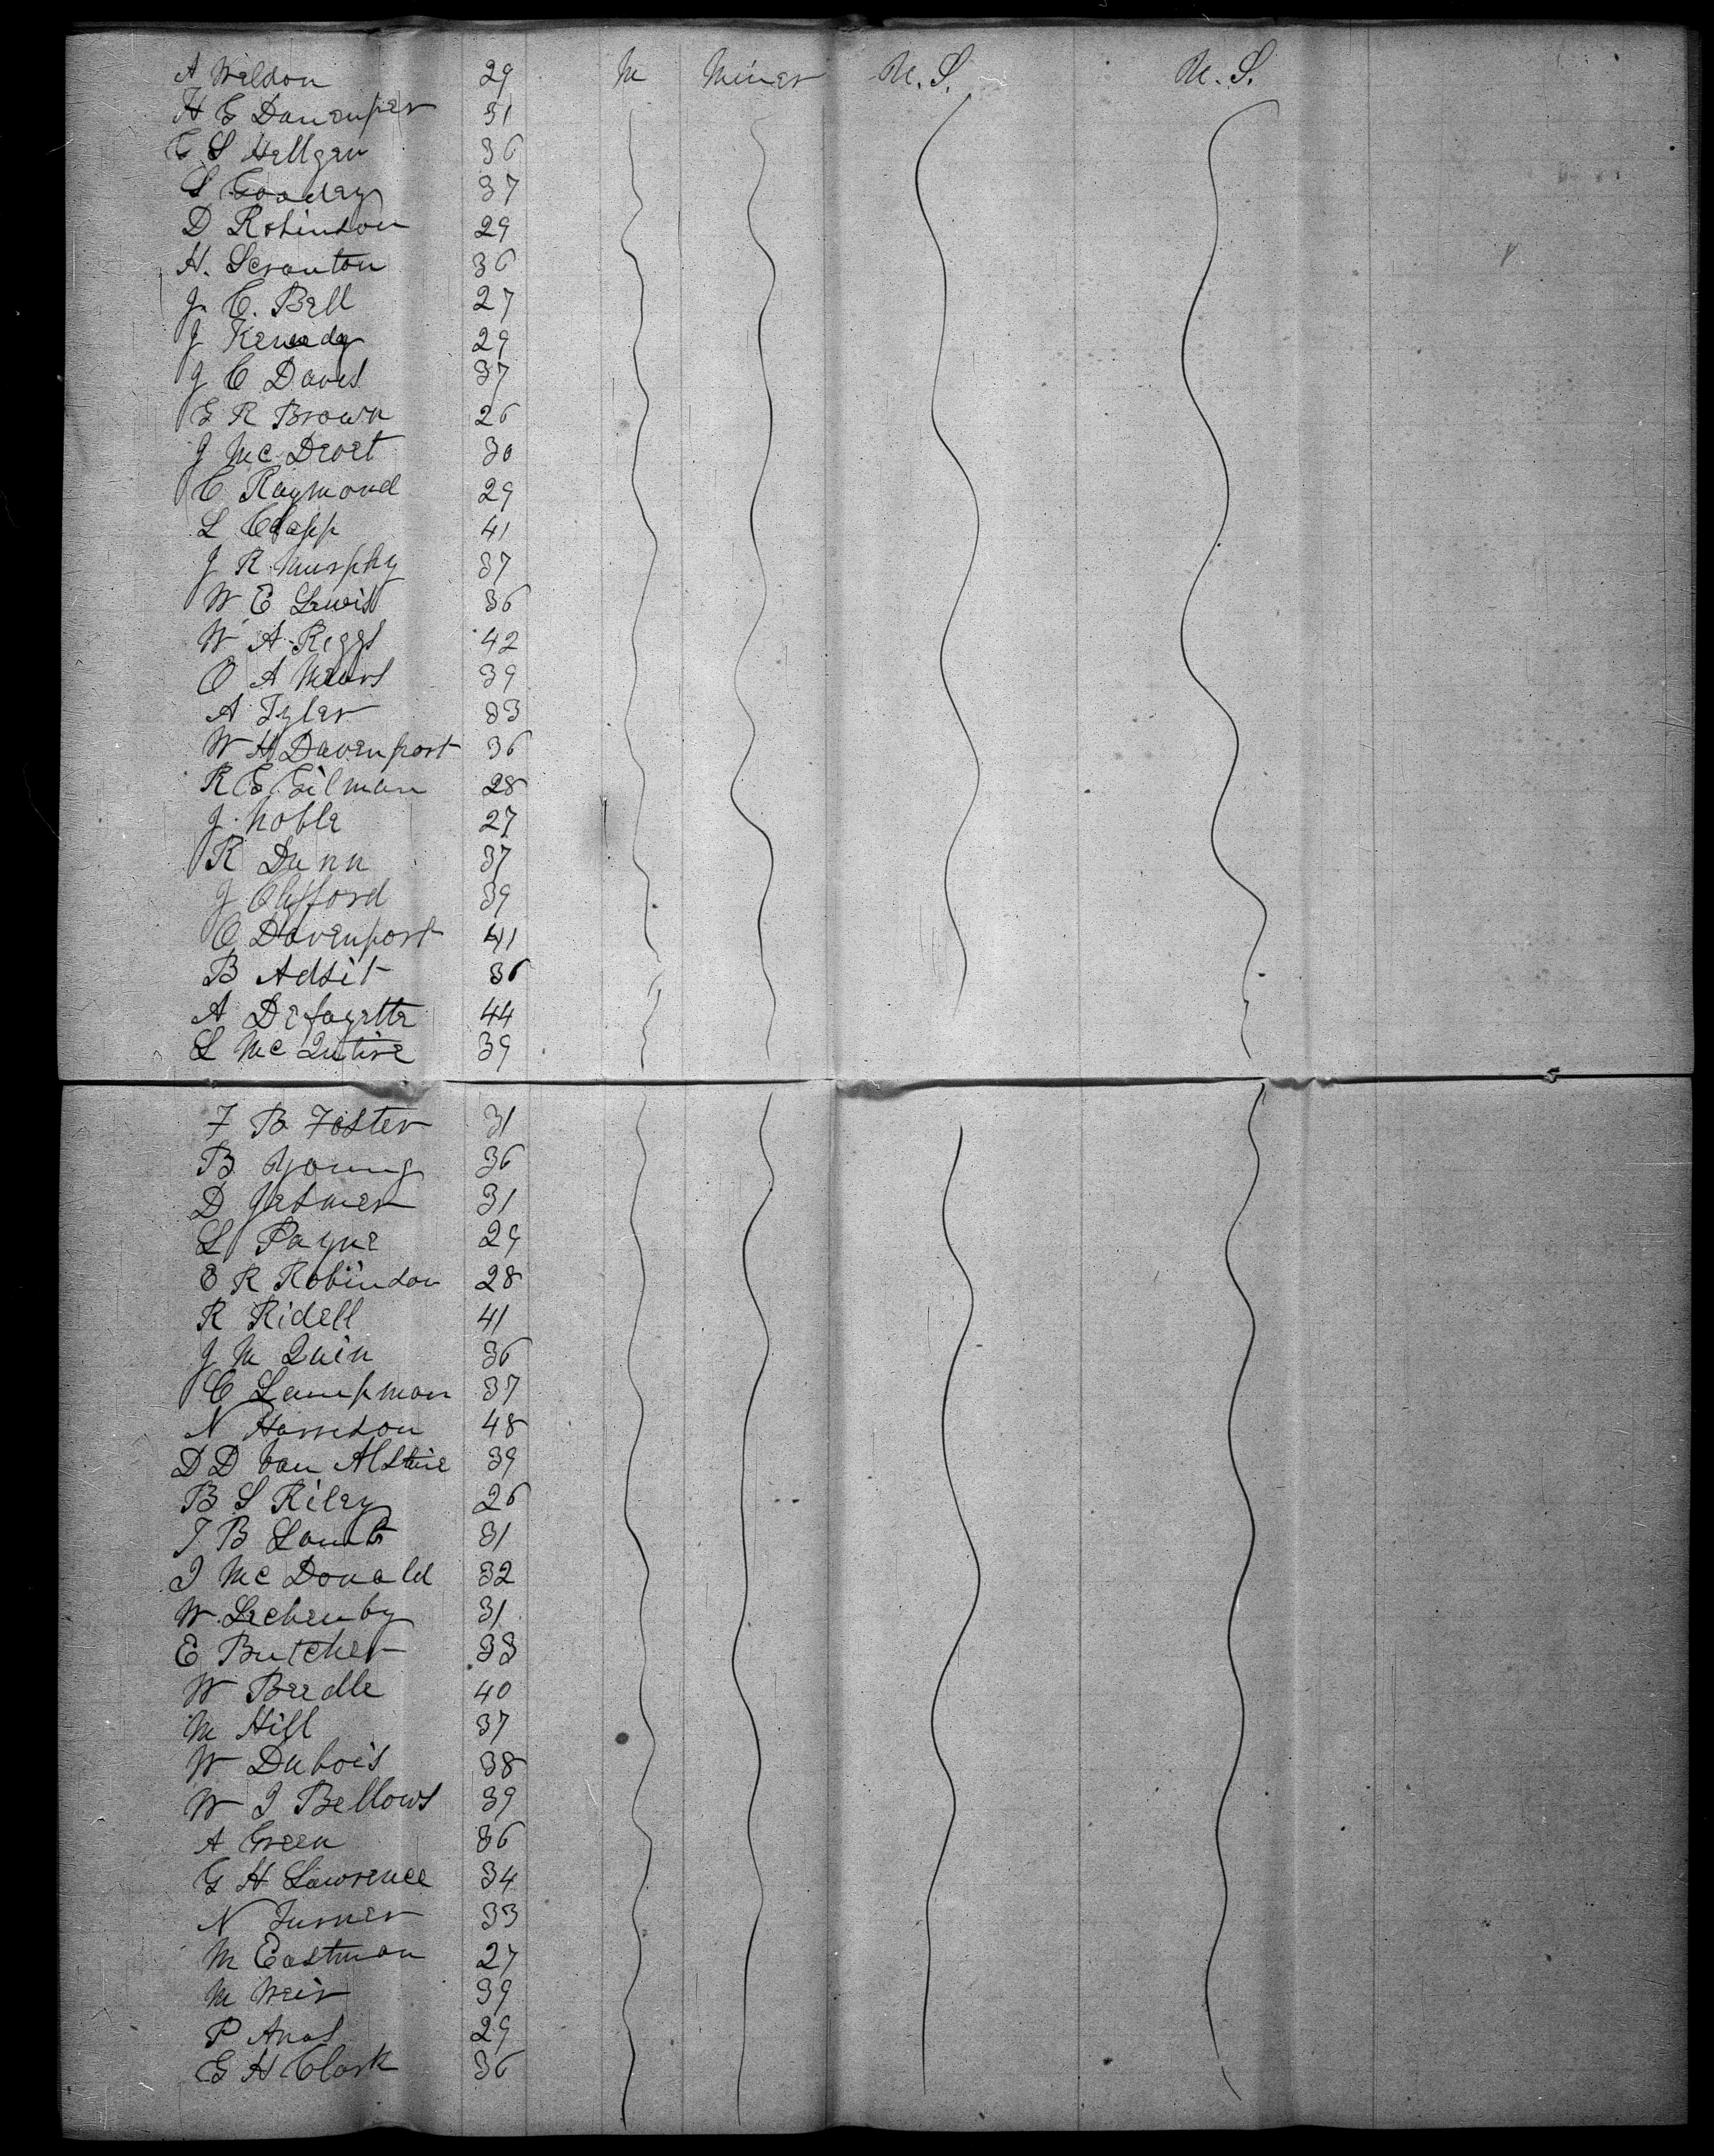 A Weldon 29 M Miner U. S. U. S.
H G Davenper 31
C S Hellgen 36
S Gooley 37
D Robinson 29
H. Scranton 36
J C. Bell 27
J Kenedy 29
J C Daves 37
G R Brown 26
J Mc 30
C Raymond 29
L Clapp 41
J R Murphy 37
W E Lewis 36
W A Riggs 42
O A Mears 39
A Tyler 33
W H Davenport 36
R G Gilman 28
J. Noble 27
R Dunn 37
J Clifford 39
C Davenport 41
B Adsit 36
A Defayette 44
L Mc Intire 39
F B Foster 31
B Young 36
D 31
L Payne 29
E R Robinson 28
R Ridell 41
J M Quin 36
C Lampman 37
N Harrison 48
D D Van Alstine 39
B S Riley 26
T B Lamb 31
J Mc Donald 32
W. Lechenby 31
E Butcher 33
W Beedle 40
M Hill 37
W Dubois 38
W J Bellows 39
A Green 36
G H Lawrence 34
N Turner 33
M Eastman 27
M Weir 39
P Anas 29
G H Clark 36